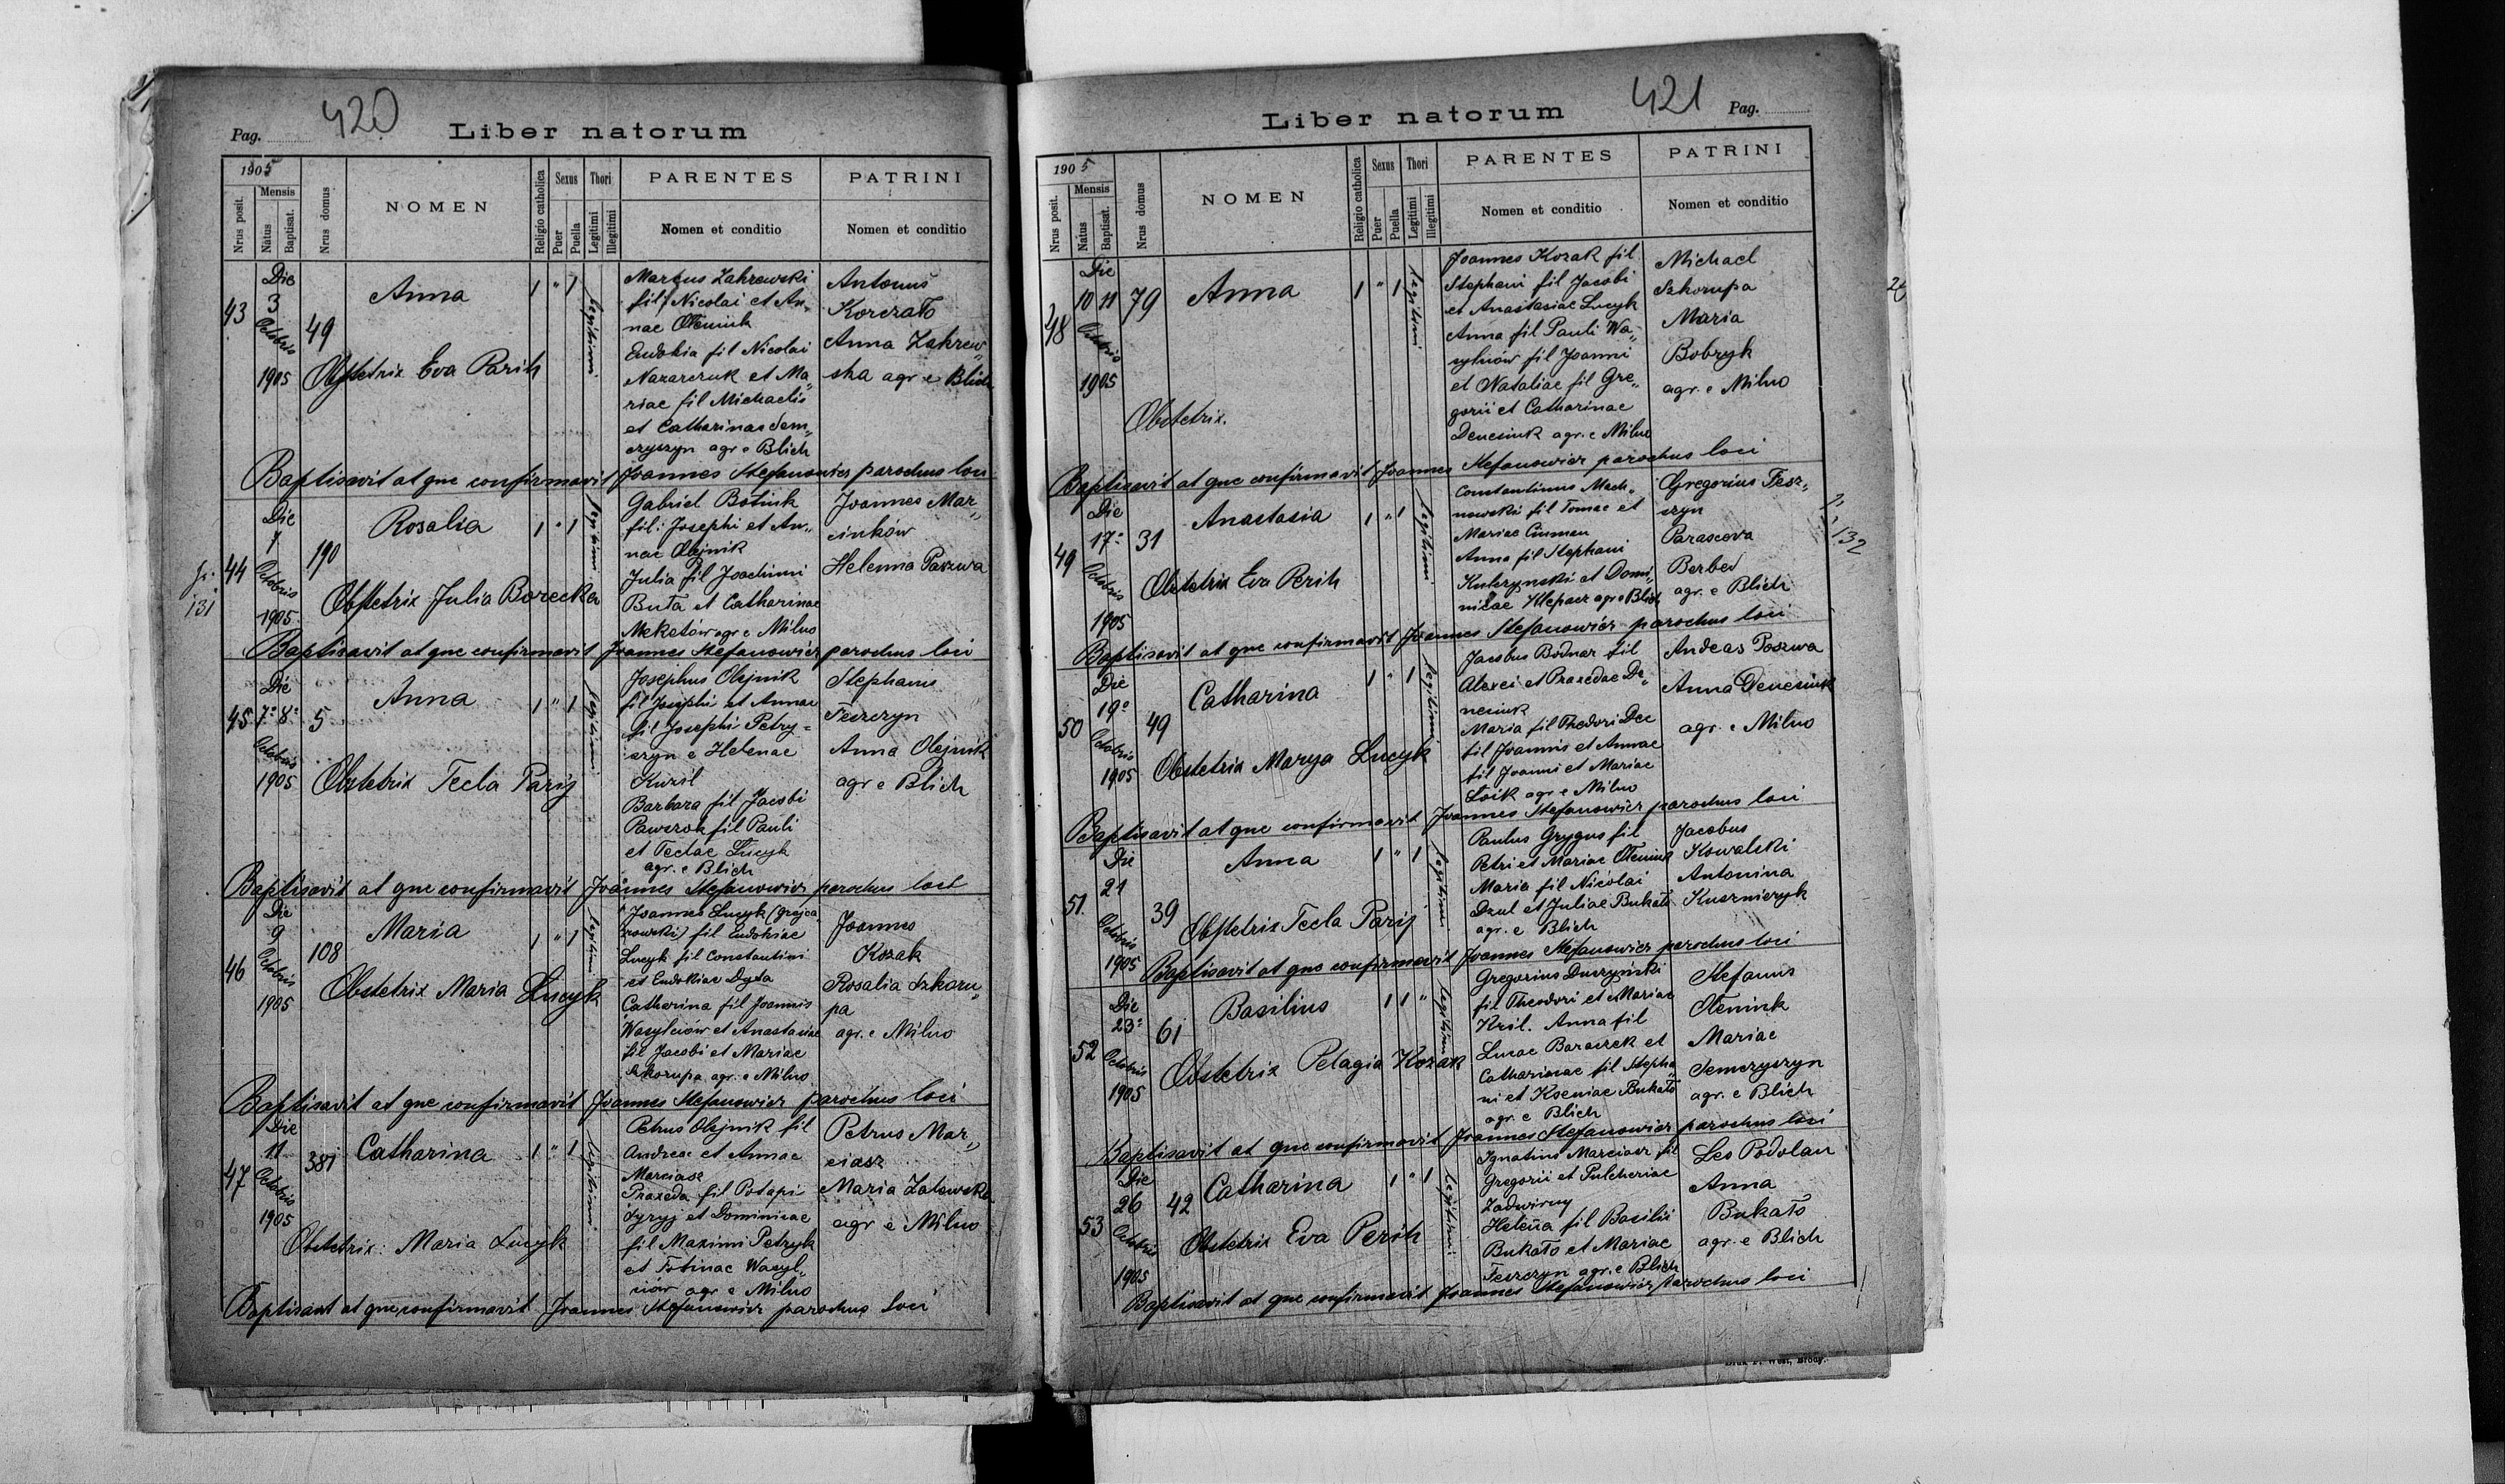 Pag. 420
Liber natorum
1905
Nrus posit.
Mensis
Natus
Baptisat.
Nrus domus
NOMEN
Religio catholica
Sexus
Puer
Puella
Thori
Legitimi
Illegitimi
PARENTES
Nomen et conditio
PATRINI
Nomen et conditio
43
Die
3
Octobris
1905
49
Anna
1 " 1
legitimi
Obstetrix Eva Parih
Marcus Zakrewski
fil Nicolai et An„
nae Oleniuk
Eudokia fil Nicolai
Nazarczuk et Ma„
riae fil Michaelis
et Catharinae Sem„
czyszyn agr e Blich
Antonius
Korczało
Anna Zakrew„
ska agr e Blich
Baptisavit atque confirmavit Joannes Stefanowicz parochus loci
131
44
Die
7
Octobris
1905
190
Rosalia
1 " 1
legitimi
Obstetrix Julia Borecka
Gabriel Botiuk
fil: Josephi et An„
nae Olejnik
Julia fil Joachimi
Buta et Catharinae
Meketów agr e Milno
Joannes Mar„
cinków
Helenna Paszwa
Baptisavit atque confirmavit Joannes Stefanowicz parochus loci
45
Die
7° 8°
Octobris
1905
5
Anna
1 " 1
legitimi
Obstetrix Tecla Parij
Josephus Olejnik
fil Josiphi et Annae
fil Josephi Petry=
szyn e Helenae
Kuzil
Barbara fil Jacobi
Pawczok fil Pauli
et Teclae Lucyk
agr. e Blich
Stephanus
Feszczyn
Anna Olejnik
agr e Blich
Baptisavit atque confirmavit Joannes Stefanowicz parochus loci
46
Die
9
Octobris
1905
108
Maria
1 " 1
legitimi
Obstetrix Maria Lucyk
Joannes Lucyk (Grajca
rowski) fil Eudokiae
Lucyk fil Constantini
et Eudokiae Dyda
Catharina fil Joannis
Wasylciów et Anastasiae
fil Jacobi et Mariae
Szkorupa agr. e Milno
Joannes
Kozak
Rosalia Szkoru„
pa
agr. e Milno
Baptisavit atque confirmavit Joannes Stefanowicz parochus loci
47
Die
11
Octobris
1905
381
Catharina
1 " 1
legitimi
Obstetrix: Maria Lucyk
Petrus Olejnik fil
Andreae et Annae
Marciasz
Praxeda fil Potapi
Dyryj et Dominicae
fil Maximi Petryk
et Fotinae Wasyl„
ciów agr e Milno
Petrus Mar„
ciasz
Maria Zalewska
agr e Milno
Baptisavit atque confirmavit Joannes Stefanowicz parochus loci
Liber natorum
421 Pag.
1905
Nrus posit.
Mensis
Natus
Baptisat.
Nrus domus
NOMEN
Religio catholica
Sexus
Puer
Puella
Thori
Legitimi
Illegitimi
PARENTES
Nomen et conditio
PATRINI
Nomen et conditio
48
Die
10 11
Octobris
1905
79
Anna
1 " 1
legitimi
Obstetrix.
Joannes Kozak fil
Stephani fil Jacobi
et Anastasiae Lucyk
Anna fil Pauli Wa„
sylciów fil Joanni
et Nataliae fil Gre„
gorii et Catharinae
Denesiuk agr. e Milno
Michael
Szkorupa
Maria
Bobryk
agr. e Milno
Baptisavit atque confirmavit Joannes Stefanowicz parochus loci
132
49
Die
17°
Octobris
1905
31
Anastasia
1 " 1
legitimi
Obstetrix Eva Perih
Constantinus Mach„
nowski fil Tomae et
Mariae
Anna fil Stephani
Kulczynski et Domi„
nicae Klepacz agr e Blich
Gregorius Fesz„
szyn
Parascova
Berbeć
agr. e Blich
Baptisavit atque confirmavit Joannes Stefanowicz parochus loci
50
Die
19°
Octobris
1905
49
Catharina
1 " 1
legitimi
Obstetrix Marya Lucyk
Jacobus Bodnar fil
Alexei et Praxedae De„
nesiuk
Maria fil Thedori Dec
fil Joannis et Annae
fil Joanni et Mariae
Łoik agr e Milno
Andeas Poszwa
Anna Denesiuk
agr. e Milno
Baptisavit atque confirmavit Joannes Stefanowicz parochus loci
51.
Die
21
Octobris
1905
39
Anna
1 " 1
legitimi
Obstetrix Tecla Parij
Paulus Grygus fil
Petri et Mariae Oleniuk
Maria fil Nicolai
Dzul et Juliae Bukało
agr. e Blich
Jacobus
Kowalski
Antonina
Kusznieryk
Baptisavit atque confirmavit Joannes Stefanowicz parochus loci
52
Die
23°
Octobris
1905
61
Basilius
1 1 "
legitimi
Obstetrix Pelagia Kozak
Gregorius Duszyński
fil Theodori et Mariae
Kril. Anna fil
Lucae Baraczek et
Catharinae fil Stepha„
ni et Kseniae Bukało
agr. e Blich
Stefanus
Oleniuk
Mariae
Semczyszyn
agr. e Blich
Baptisavit atque confirmavit Joannes Stefanowicz parochus loci
53
Die
26
Octobris
1905
42
Catharina
1 " 1
legitimi
Obstetrix Eva Perih
Ignatius Marciasz fil
Gregorii et Pulcheriae
Zadwirny
Helena fil Basilii
Bukało et Mariae
Feszczyn agr. e Blich
Leo Podolan
Anna
Bukało
agr. e Blich
Baptisavit atque confirmavit Joannes Stefanowicz parochus loci
Druk F. West, Brody.